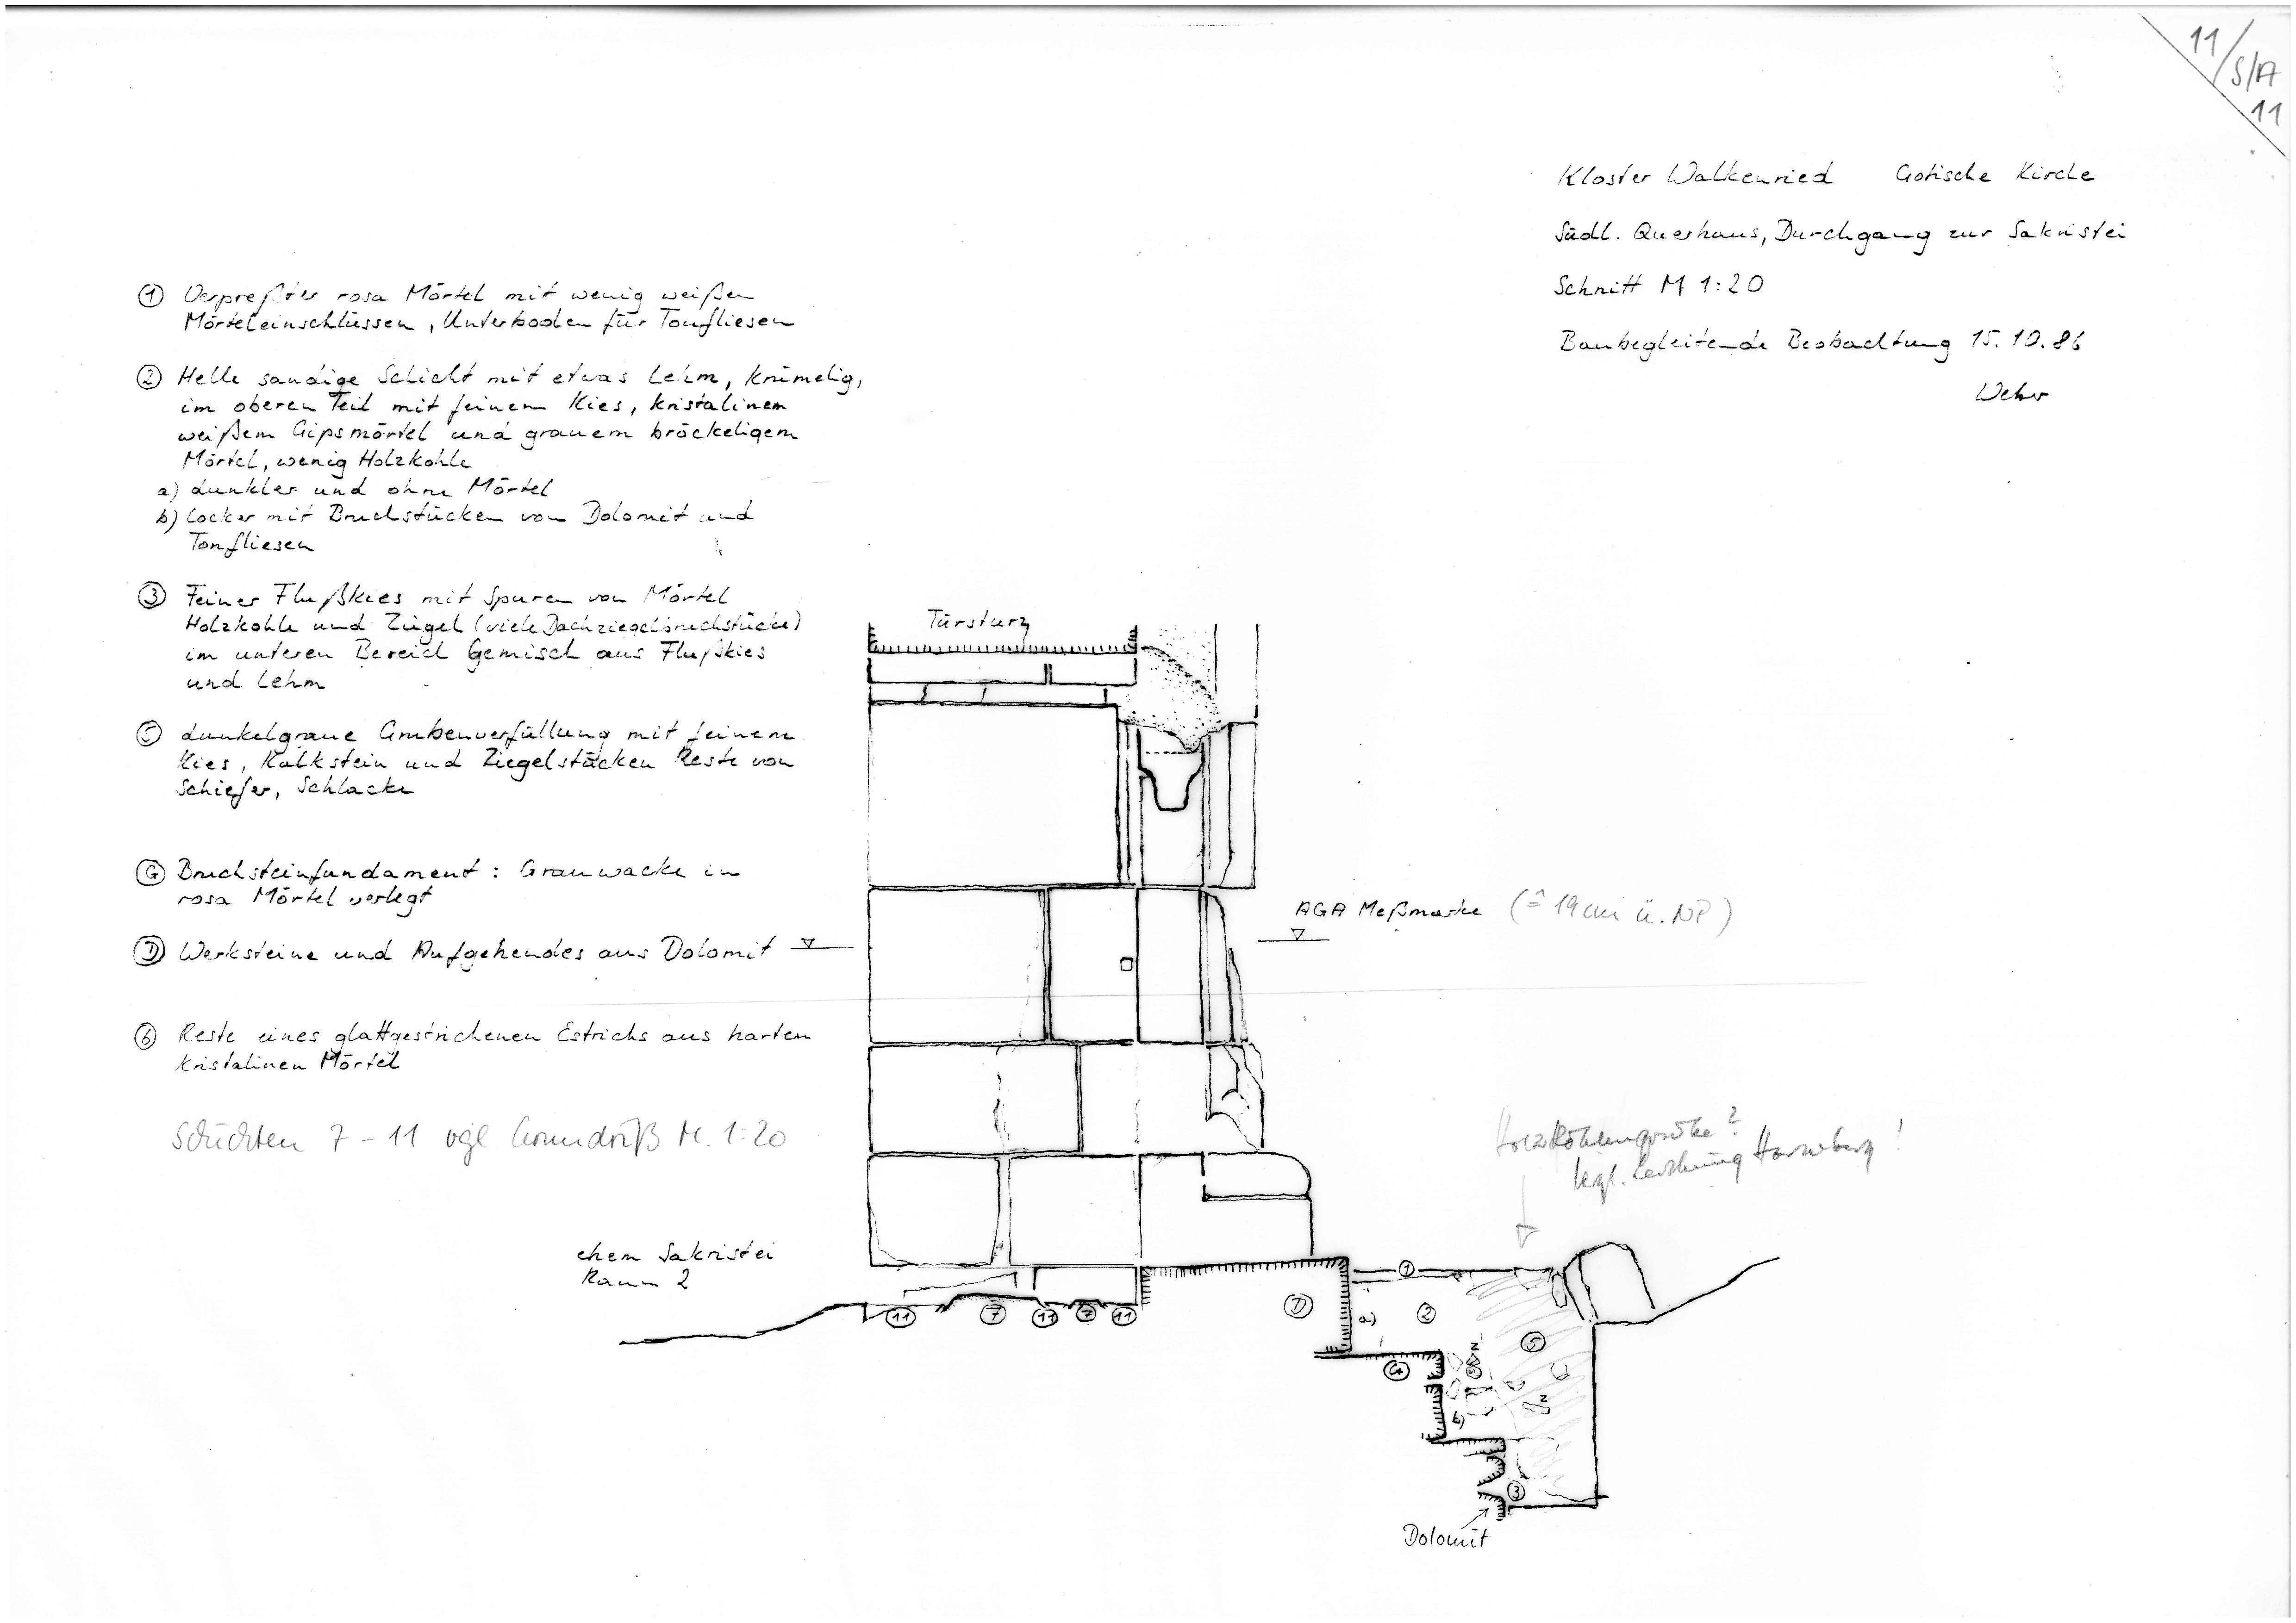 11/S/A
11
Kloster Walkenried Gotische Kirche
Südl. Querhaus, Durchgang zur Sakristei
Schnitt M 1:20
Baubegleitende Beobachtung 15.10.86
Wehr
① Verpreßter rosa Mörtel mit wenig weißen
Mörteleinschlüssen, Unterboden für Tonfliesen
② Helle sandige Schicht mit etwas Lehm, krümelig,
im oberen Teil mit feinem Kies, kristalinem
weißem Gipsmörtel und grauem bröckeligem
Mörtel, wenig Holzkohle
a) dunkler und ohne Mörtel
b) locker mit Bruchstücken von Dolomit und
Tonfliesen
③ Feiner Flußkies mit Spuren von Mörtel
Holzkohle und Ziegel (viele Dachziegelbruchstücke)
im unteren Bereich Gemisch aus Flußkies
und Lehm
⑤ dunkelgraue Grubenverfüllung mit feinem
Kies, Kalkstein und Ziegelstücken Reste von
Schiefer, Schlacke
Ⓖ Bruchsteinfundament: Grauwacke in
rosa Mörtel verlegt
Ⓓ Werksteine und Aufgehendes aus Dolomit
⑥ Reste eines glattgestrichenen Estrichs aus hartem
kristalinen Mörtel
Schichten 7-11 vgl Grundriß M. 1:20
Türsturz
AGA Meßmarke (≙ 19 cm ü. NP)
Holzkohlengrube?
vgl. Zeichnung Horneberg!
ehem Sakristei
Raum 2
⑪ ⑦ ⑪ ⑦ ⑪
Ⓓ
①
a) ②
⑤
Ⓖ
Z
Z
b)
③
Dolomit